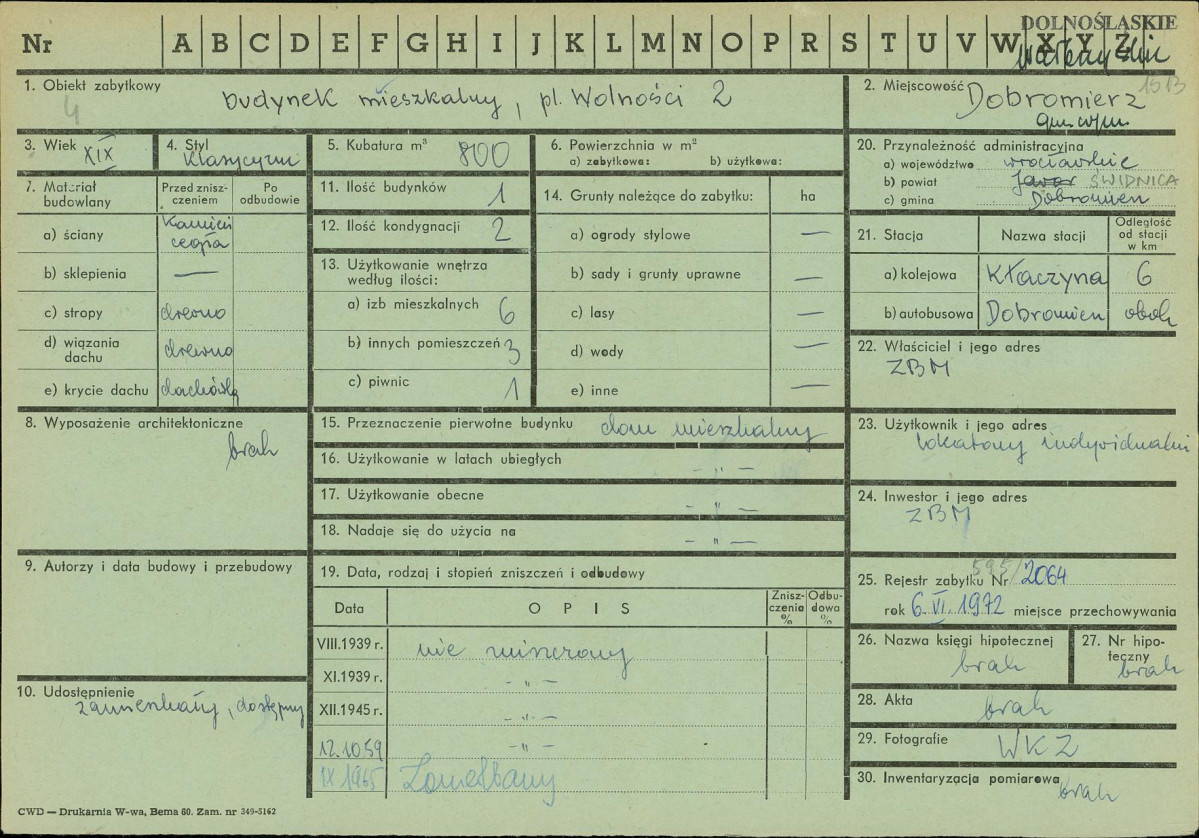 DOLNOŚLĄSKIE
Nr A B C D E F G H I J K L M N O P R S T U V W X Y Z
1. Obiekt zabytkowy
4
budynek mieszkalny, pl. Wolności 2
2. Miejscowość
15B
Dobromierz
3. Wiek XIX
4. Styl klasycyzm
5. Kubatura m³ 800
6. Powierzchnia w m²
a) zabytkowa: b) użytkowa:
20. Przynależność administracyjna
a) województwo wrocławskie
b) powiat Jawor ŚWIDNICA
c) gmina Dobromierz
7. Materiał budowlany
Przed zniszczeniem
Po odbudowie
a) ściany kamień cegła
b) sklepienia —
c) stropy drewno
d) wiązania dachu drewno
e) krycie dachu dachówką
11. Ilość budynków 1
12. Ilość kondygnacji 2
13. Użytkowanie wnętrza według ilości:
a) izb mieszkalnych 6
b) innych pomieszczeń 3
c) piwnic 1
14. Grunty należące do zabytku: ha
a) ogrody stylowe —
b) sady i grunty uprawne —
c) lasy —
d) wody —
e) inne —
21. Stacja
Nazwa stacji
Odległość od stacji w km
a) kolejowa Kłaczyna 6
b) autobusowa Dobromierz obok
22. Właściciel i jego adres
ZBM
8. Wyposażenie architektoniczne
brak
15. Przeznaczenie pierwotne budynku dom mieszkalny
16. Użytkowanie w latach ubiegłych — " —
17. Użytkowanie obecne — " —
18. Nadaje się do użycia na — " —
23. Użytkownik i jego adres
lokatorzy indywidualni
24. Inwestor i jego adres
ZBM
9. Autorzy i data budowy i przebudowy
19. Data, rodzaj i stopień zniszczeń i odbudowy
Data
O P I S
Zniszczenia %
Odbudowa %
VIII.1939 r. nie niszczony
XI.1939 r. — " —
XII.1945 r. — " —
12.10.59 — " —
IX 1965 Zamieszkany
25. Rejestr zabytku Nr 595/2064
rok 6.VI.1972 miejsce przechowywania
26. Nazwa księgi hipotecznej
brak
27. Nr hipoteczny
brak
10. Udostępnienie
zamieszkały, dostępny
28. Akta brak
29. Fotografie WKZ
30. Inwentaryzacja pomiarowa brak
CWD — Drukarnia W-wa, Bema 60. Zam. nr 349-5162